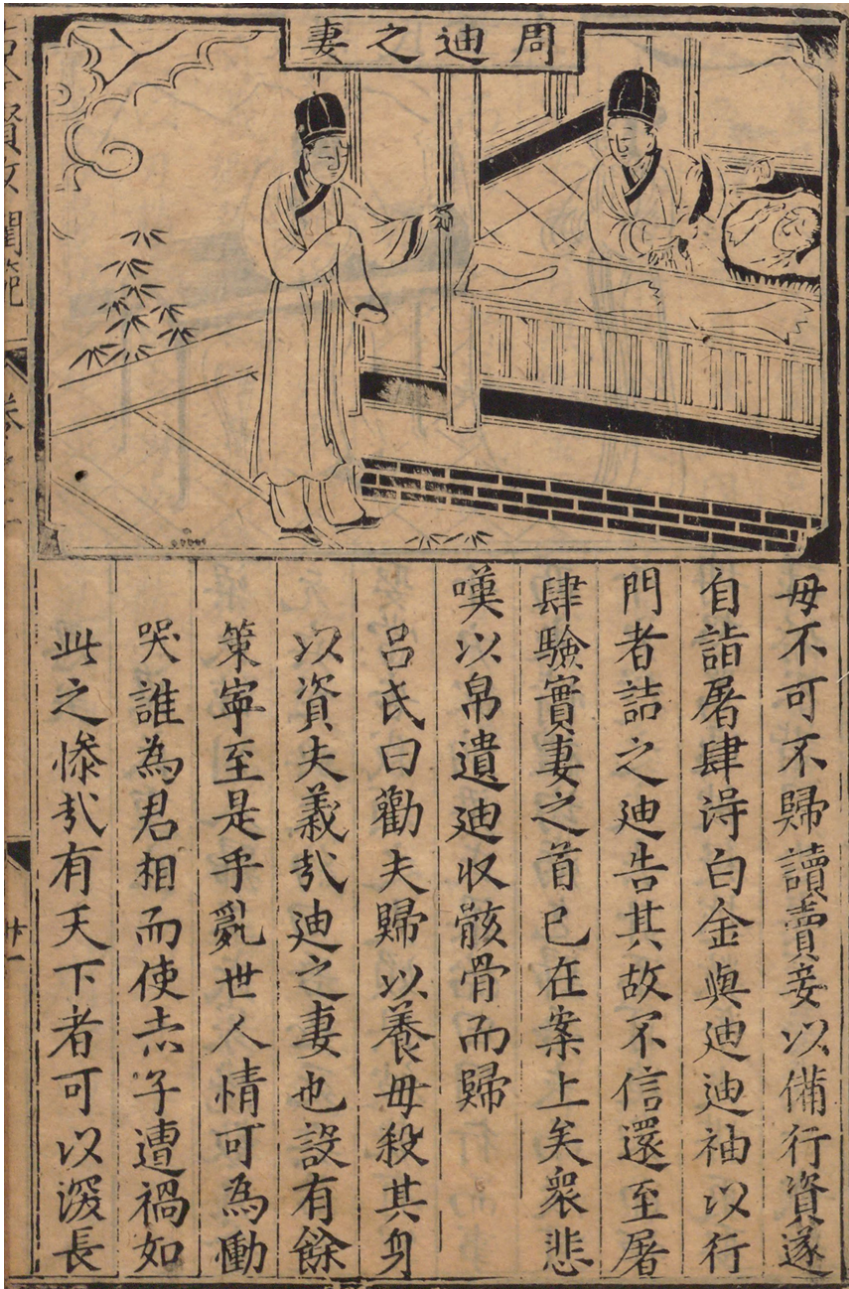 周迪之妻
母不可不歸讀賣妾以備行資遂
自詣屠肆淂白金與迪迪袖以行
門者詰之迪告其故不信還至屠
肆驗實妻之首已在案上矣衆悲
嘆以帛遺迪収骸骨而歸
呂氏曰勸夫歸以養母殺其身
以資夫義㢤迪之妻也設有餘
策寧至是乎亂世人情可為慟
哭誰為君相而使赤子遭禍如
此之慘㢤有天下者可以深長
賢女閨範
卄一